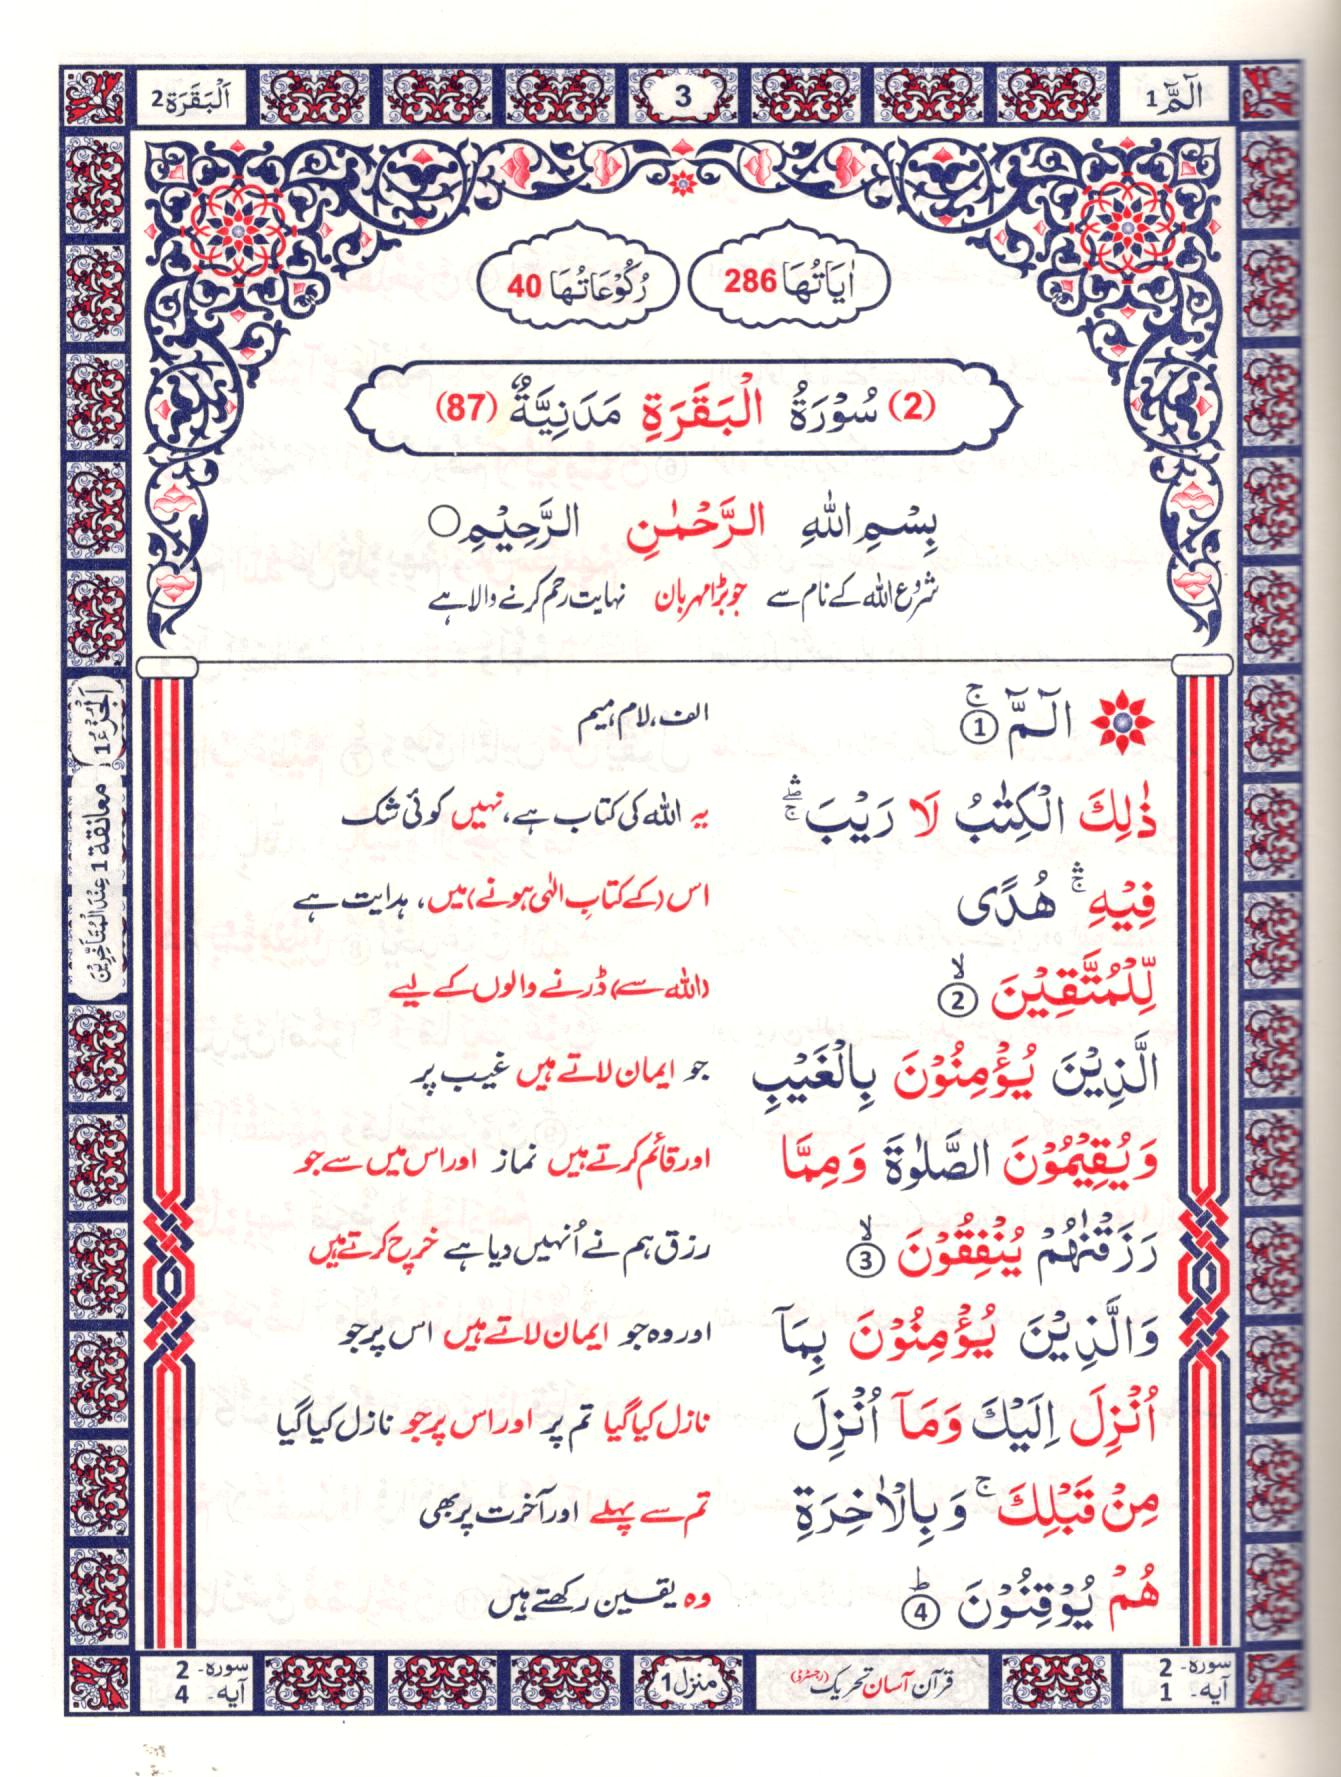 الٓمّٓ 1
3
اَلْبَقَرَة 2
اٰيَاتُهَا 286
رُكُوْعَاتُهَا 40
(2) سُوْرَةُ الْبَقَرَةِ مَدَنِيَّةٌ (87)
بِسْمِ اللّٰهِ الرَّحْمٰنِ الرَّحِيْمِ○
شروع اللہ کے نام سے جو بڑا مہربان نہایت رحم کرنے والا ہے
الٓمّٓ ۚ 1 الف، لام، میم
ذٰلِكَ الْكِتٰبُ لَا رَيْبَ ۛۖۚ یہ اللہ کی کتاب ہے، نہیں کوئی شک
فِيْهِ ۛۚ هُدًى اس (کے کتابِ الٰہی ہونے) میں، ہدایت ہے
لِّلْمُتَّقِيْنَ ۙ 2 (اللہ سے) ڈرنے والوں کے لیے
الَّذِيْنَ يُؤْمِنُوْنَ بِالْغَيْبِ جو ایمان لاتے ہیں غیب پر
وَيُقِيْمُوْنَ الصَّلٰوةَ وَمِمَّا اور قائم کرتے ہیں نماز اور اس میں سے جو
رَزَقْنٰهُمْ يُنْفِقُوْنَ ۙ 3 رزق ہم نے اُنہیں دیا ہے خرچ کرتے ہیں
وَالَّذِيْنَ يُؤْمِنُوْنَ بِمَآ اور وہ جو ایمان لاتے ہیں اس پر جو
اُنْزِلَ اِلَيْكَ وَمَآ اُنْزِلَ نازل کیا گیا تم پر اور اس پر جو نازل کیا گیا
مِنْ قَبْلِكَ ۚ وَبِالْاٰخِرَةِ تم سے پہلے اور آخرت پر بھی
هُمْ يُوْقِنُوْنَ ؕ 4 وہ یقین رکھتے ہیں
اَلْجُزْءُ 1
معانقة 1 عِنْدَ الْمُتَاَخِّرِيْنَ
سورہ- 2
آیہ- 1
قرآن آسان تحریک (رجسٹرڈ)
منزل 1
سورہ- 2
آیہ- 4